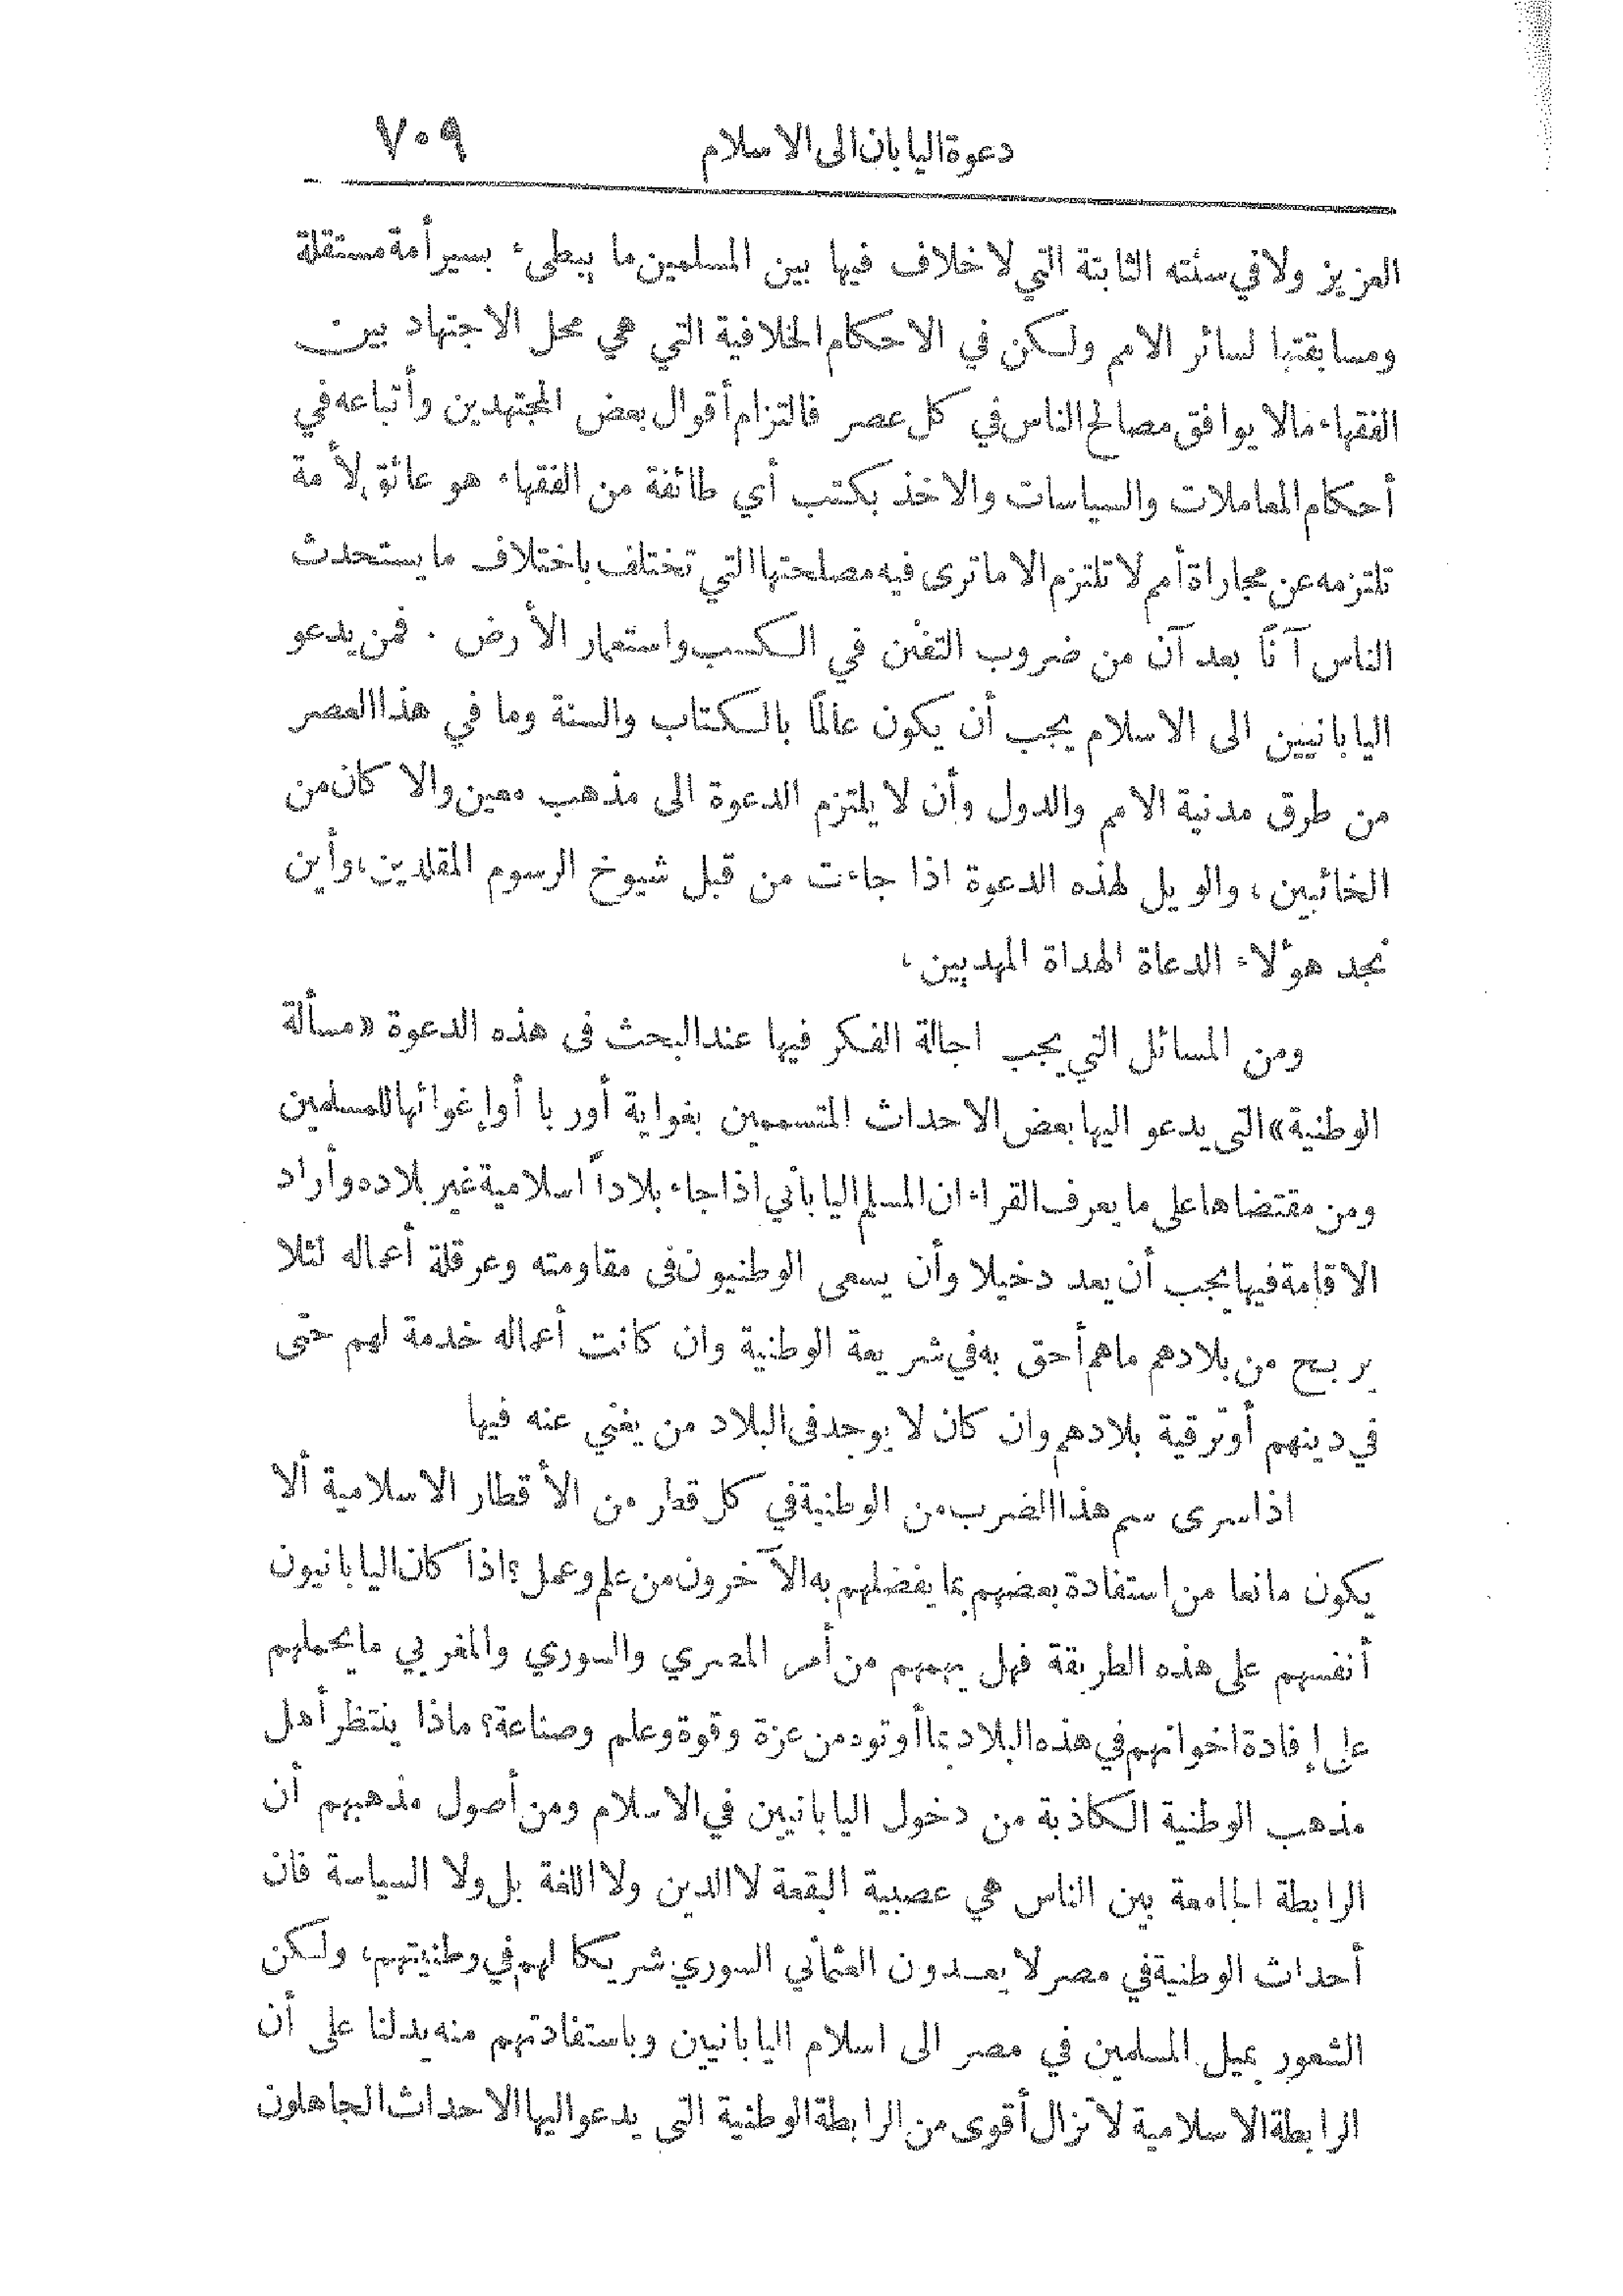 دعوة اليابان الى الاسلام ٧٠٩
العزيز ولا في سنته الثابتة التي لا خلاف فيها بين المسلمين ما يبطىء بسير أمة مستقلة
ومسابقتها لسائر الامم ولكن في الاحكام الخلافية التي هي محل الاجتهاد بين
الفقهاء مالا يوافق مصالح الناس في كل عصر فالتزام أقوال بعض المجتهدين وأتباعه في
أحكام المعاملات والسياسات والاخذ بكتب أي طائفة من الفقهاء هو عائق لأمة
تلتزمه عن مجاراة أمم لا تلتزم الا ما ترى فيه مصلحتها التي تختلف باختلاف ما يستحدث
الناس آنًا بعد آن من ضروب التفنن في الكسب واستعمار الأرض . فمن يدعو
اليابانيين الى الاسلام يجب أن يكون عالمًا بالكتاب والسنة وما في هذا العصر
من طرق مدنية الامم والدول وأن لا يلتزم الدعوة الى مذهب معين والا كان من
الخائبين ، والويل لهذه الدعوة اذا جاءت من قبل شيوخ الرسوم المقلدين، وأين
نجد هؤلاء الدعاة الهداة المهديين ،
ومن المسائل التي يجب اجالة الفكر فيها عند البحث فى هذه الدعوة «مسألة
الوطنية» التى يدعو اليها بعض الاحداث المتسممين بغواية أوربا أو إغوائها للمسلمين
ومن مقتضاها على ما يعرف القراء ان المسلم الياباني اذا جاء بلاداً اسلامية غير بلاده وأراد
الاقامة فيها يجب أن يعد دخيلا وأن يسعى الوطنيون فى مقاومته وعرقلة أعماله لئلا
يربح من بلادهم ما هم أحق به في شريعة الوطنية وان كانت أعماله خدمة لهم حتى
في دينهم أو ترقية بلادهم وان كان لا يوجد فى البلاد من يغني عنه فيها
اذا سرى سم هذا الضرب من الوطنية في كل قطر من الأقطار الاسلامية ألا
يكون مانعا من استفادة بعضهم بما يفضلهم به الآخرون من علم وعمل؟ اذا كان اليابانيون
أنفسهم على هذه الطريقة فهل يهمهم من أمر المصري والسوري والمغربي ما يحملهم
على إفادة اخوانهم في هذه البلاد بما أوتوه من عزة وقوة وعلم وصناعة؟ ماذا ينتظر أهل
مذهب الوطنية الكاذبة من دخول اليابانيين في الاسلام ومن أصول مذهبهم أن
الرابطة الجامعة بين الناس هي عصبية البقعة لا الدين ولا اللغة بل ولا السياسة فان
أحداث الوطنية في مصر لا يعدون العثماني السوري شريكا لهم في وطنيتهم، ولكن
الشعور بميل المسلمين في مصر الى اسلام اليابانيين وباستفادتهم منه يدلنا على أن
الرابطة الاسلامية لا تزال أقوى من الرابطة الوطنية التى يدعو اليها الاحداث الجاهلون